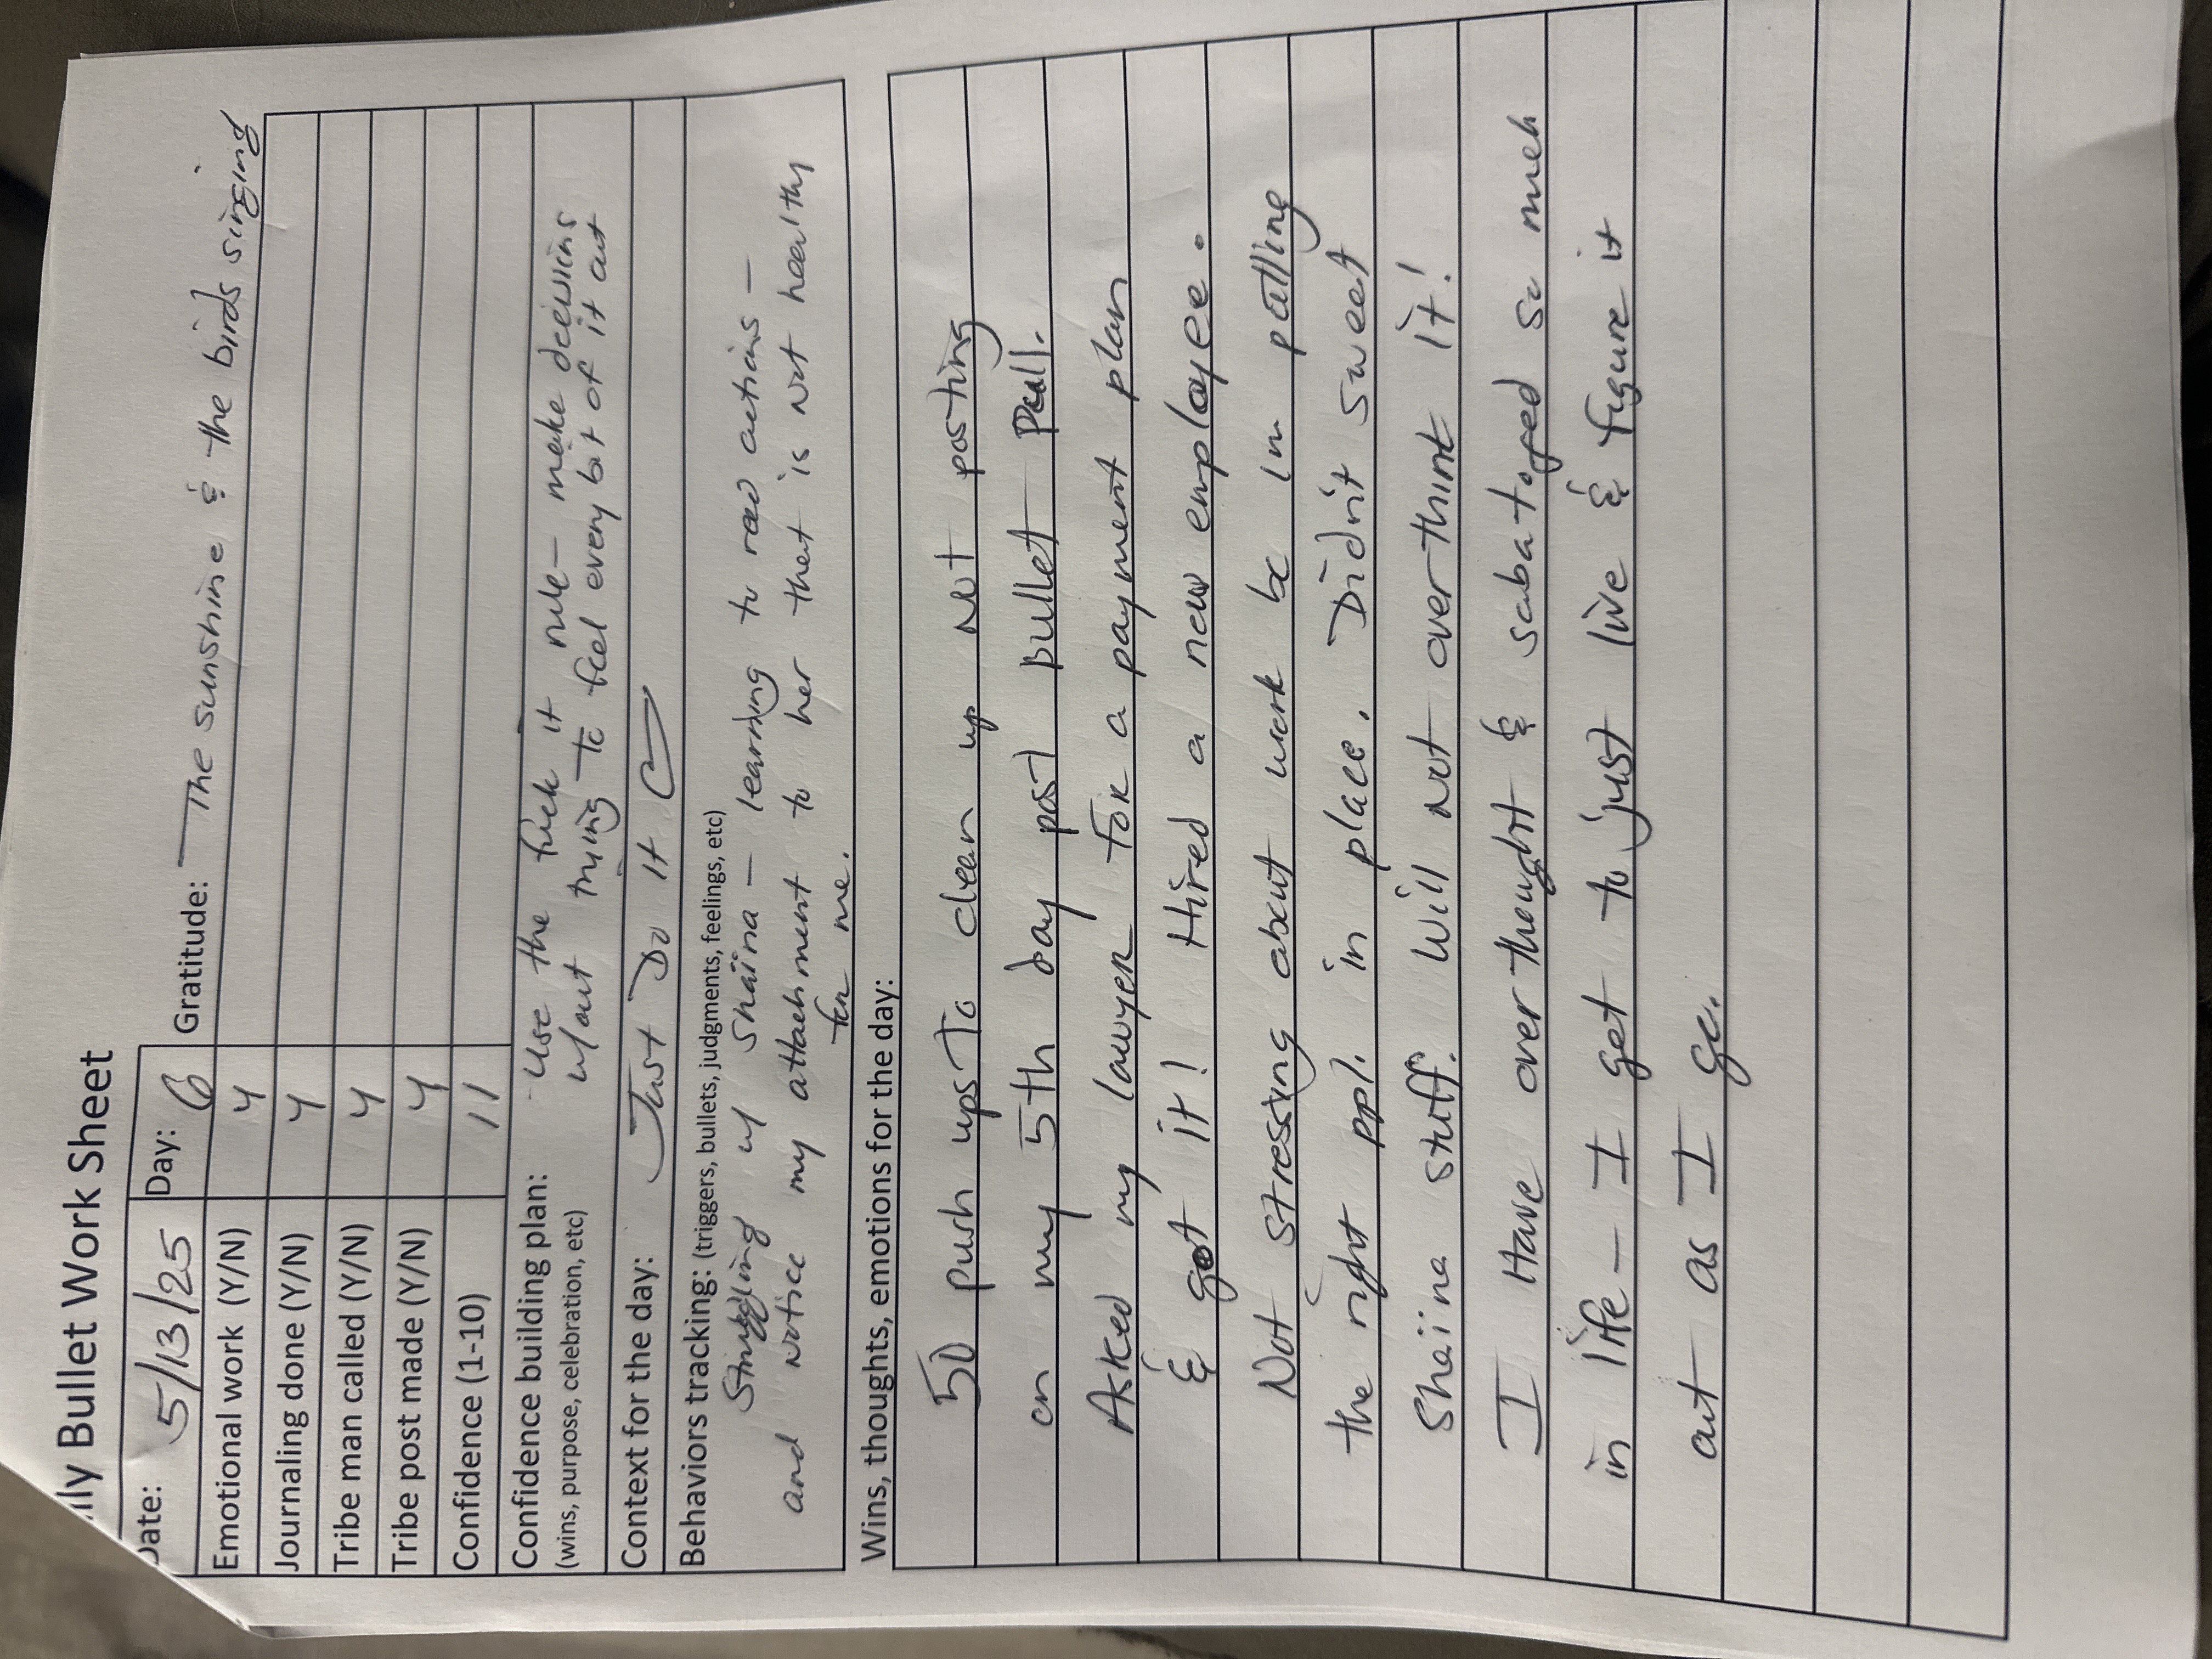 ily Bullet Work Sheet
Date: 5/13/25 Day: 6 Gratitude: The sunshine & the birds singing
Emotional work (Y/N) Y
Journaling done (Y/N) Y
Tribe man called (Y/N) Y
Tribe post made (Y/N) Y
Confidence (1-10) 11
Confidence building plan: Use the fuck it rule - make decisions
(wins, purpose, celebration, etc) w/out trying to feel every bit of it out
Context for the day: Just Do It
Behaviors tracking: (triggers, bullets, judgments, feelings, etc)
Struggling w/ Shaina - learning to read actions -
and notice my attachment to her that is not healthy
for me.
Wins, thoughts, emotions for the day:
50 push ups To clean up not posting
on my 5th day post bullet Pull.
Asked my lawyer For a payment plan
& got it! Hired a new employee.
Not stressing about work bc im putting
the right ppl. in place. Didn't sweet
Shaina stuff. Will not over think it!
I Have over thought & sabatoged so much
in life - I get to just live & figure it
out as I go.